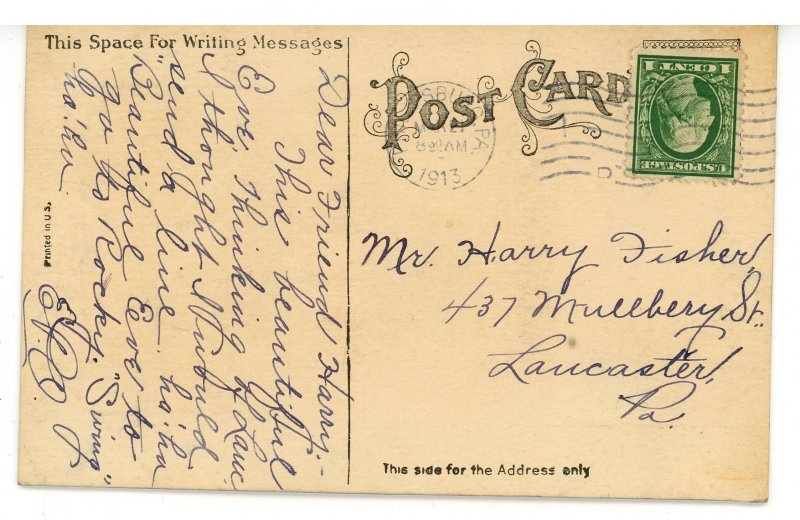 This Space For Writing Messages
Dear Friend Harry:-
This beautiful
Eve thinking of Lanc
I thought I would
send a line ha'ha
"Beautiful Eve to
go to Rocky. "Swing"
ha'ha.
Printed in U.S.
POST CARD
PA
8 30 AM
1913
D
1 CENT 1
U.S. POSTAGE
Mr. Harry Fisher,
437 Mullbery St.,
Lancaster,
Pa.
This side for the Address only